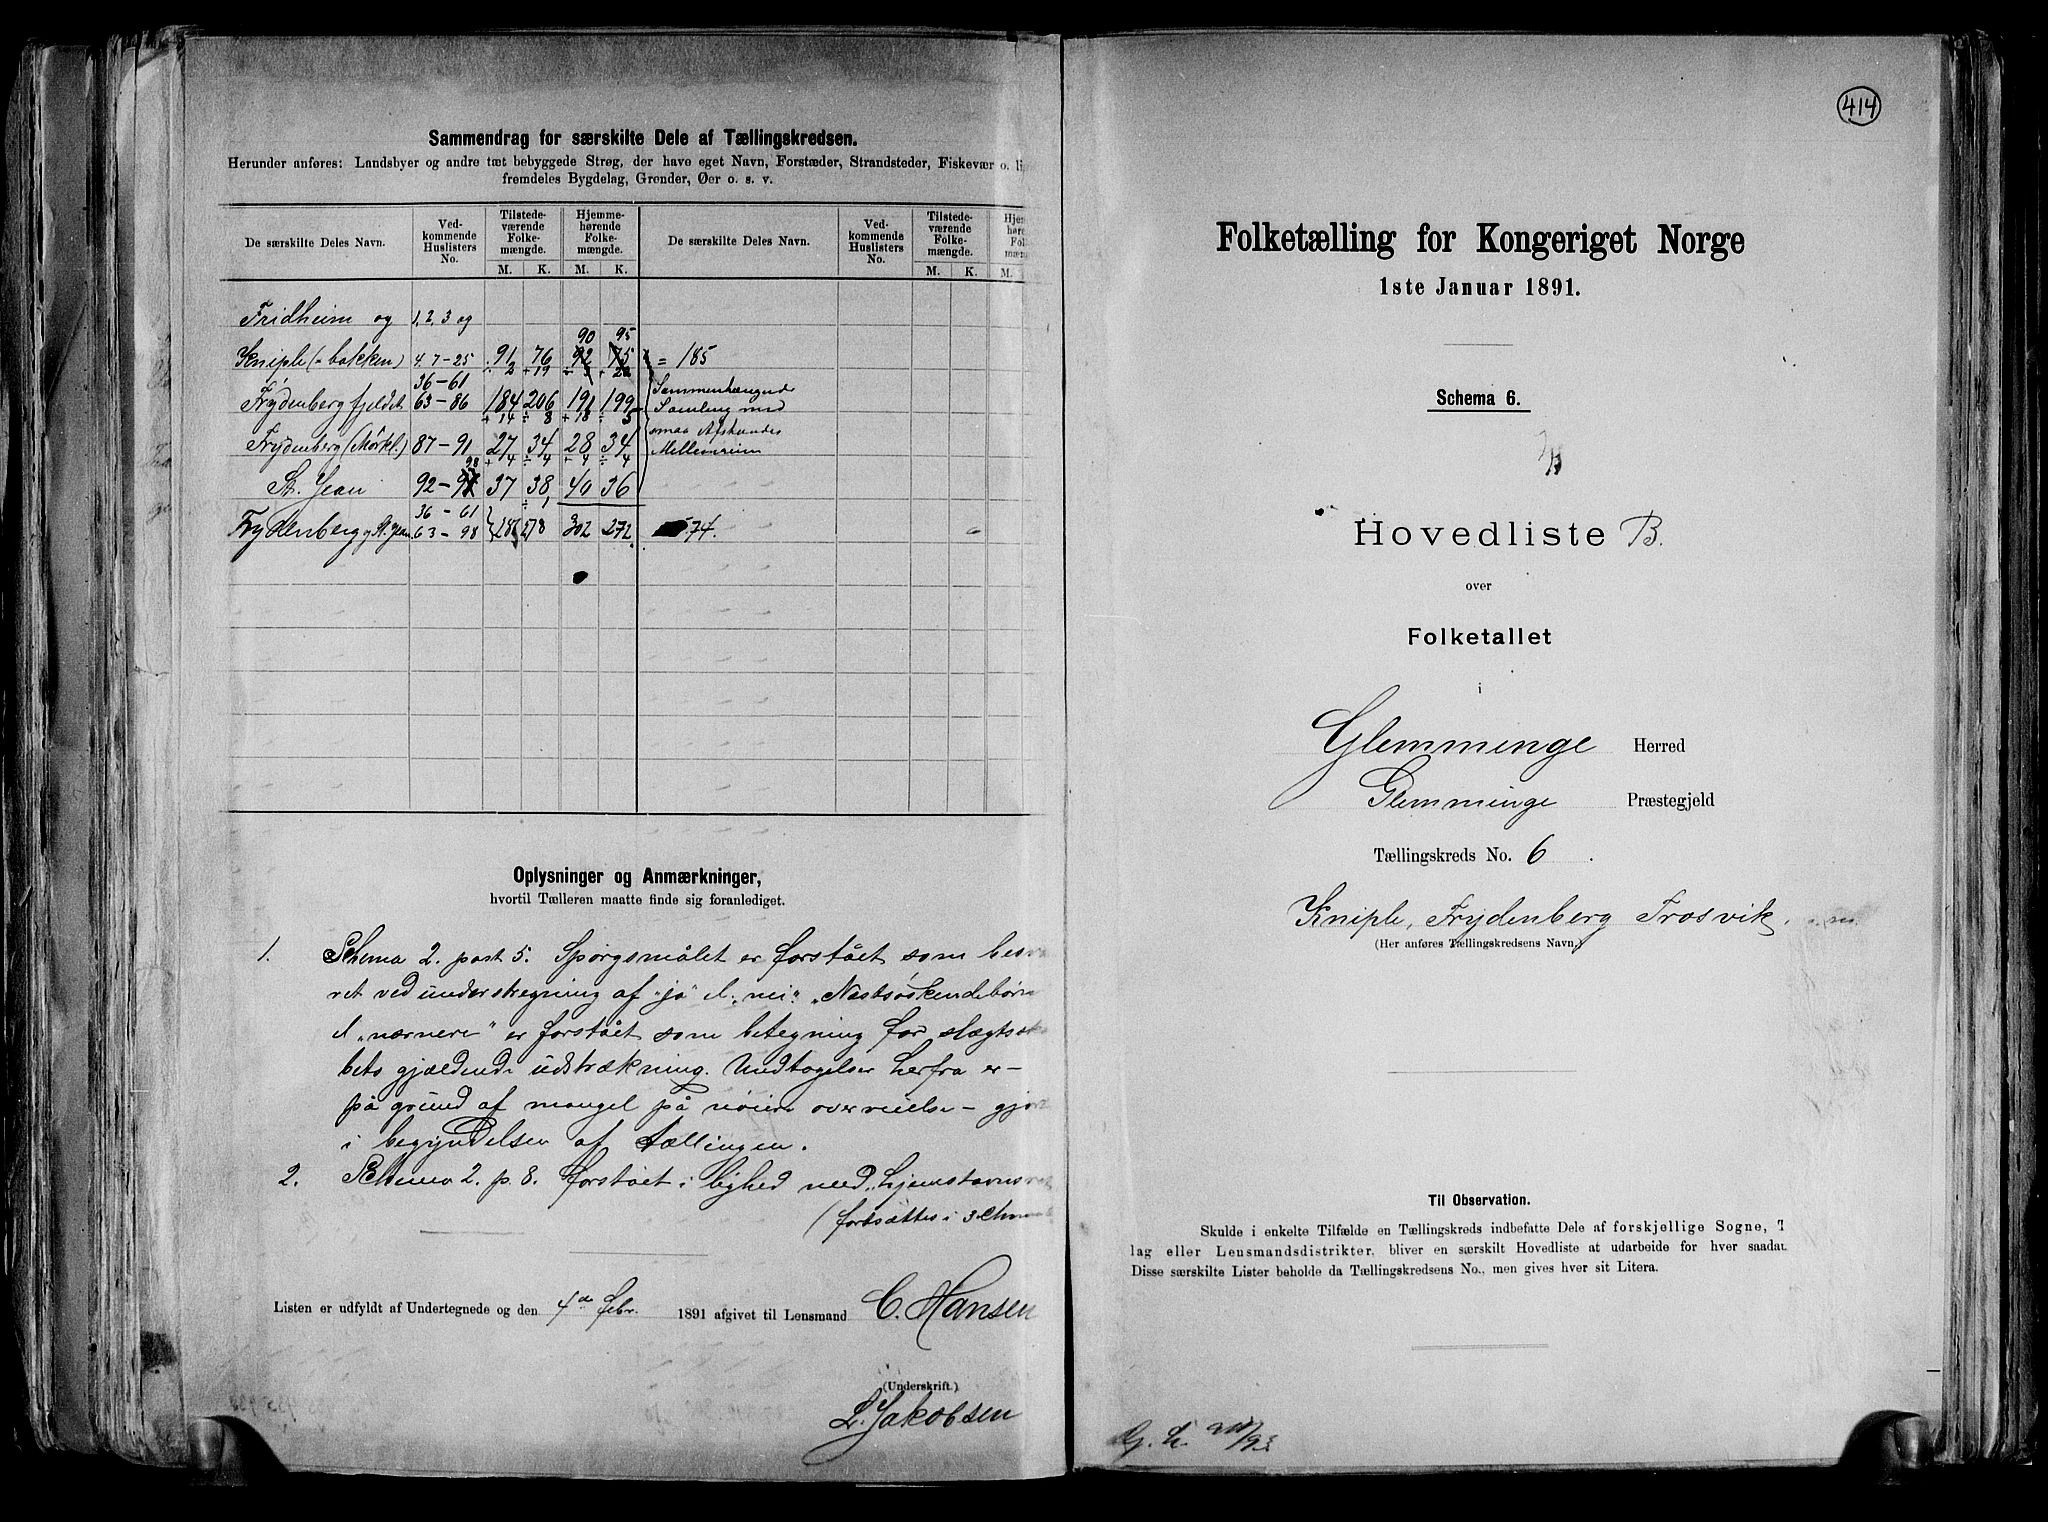 Sammendrag for særskilte Dele af Tællingskredsen.
Herunder anføres: Landsbyer og andre tæt bebyggede Strøg, der have eget Navn, Forstæder, Strandsteder, Fiskevær o. li
fremdeles Bygdelag, Grender, Øer o. s. v.
De særskilte Deles Navn. Ved-kommende Huslisters No. Tilstede-værende Folke-mængde. M. K. Hjemme-hørende Folke-mængde. M. K. De særskilte Deles Navn. Ved-kommende Huslisters No. Tilstede-værende Folke-mængde. M. K. Hjem høre Fol mæn M.
Fridheim og 1, 2, 3 og
90 95
Kniple (= bakken) 4 7-25 91 76 92 75 = 185
36-61 ÷ 2 + 19
Frydenberg fjeldet 63-86 184 206 191 199 Sammenhængende Samling med
+ 14 ÷ 8 + 18 ÷ 5
Frydenberg (Mörkl.) 87-91 27 34 28 34 smaa Afstandes Mellemrum
98 + 4 ÷ 4 + 4 ÷ 4
St. Jean 92-97 37 38 40 36
36-61
Frydenberg og St. Jean 63-98 278 302 272 574.
Oplysninger og Anmærkninger,
hvortil Tælleren maatte finde sig foranlediget.
1. Schema 2. post 5. Spørgsmålet er forstået som besva
ret ved understregning af "ja" el. "nei". "Næstsøskendebørn
el. "nærnere" er forstået som betegning for slægtsska
bets gjældende udstrækning. Undtagelser herfra er -
på grund af mangel på nøiere overveielse - gjort
i begyndelsen af tællingen.
2. Schema 2. p. 8. forstået i lighed med "hjemstavns
(fortsættes i schema
Listen er udfyldt af Undertegnede og den 4de febr. 1891 afgivet til Lensmand C. Hansen
(Underskrift.)
L. Jakobsen
414
Folketælling for Kongeriget Norge
1ste Januar 1891.
Schema 6.
Hovedliste B.
over
Folketallet
i
Glemminge Herred
Glemminge Præstegjeld
Tællingskreds No. 6.
Kniple, Frydenberg Trosvik. m.
(Her anføres Tællingskredsens Navn.)
Til Observation.
Skulde i enkelte Tilfælde en Tællingskreds indbefatte Dele af forskjellige Sogne, T
lag eller Lensmandsdistrikter, bliver en særskilt Hovedliste at udarbeide for hver saadan
Disse særskilte Lister beholde da Tællingskredsens No., men gives hver sit Litera.